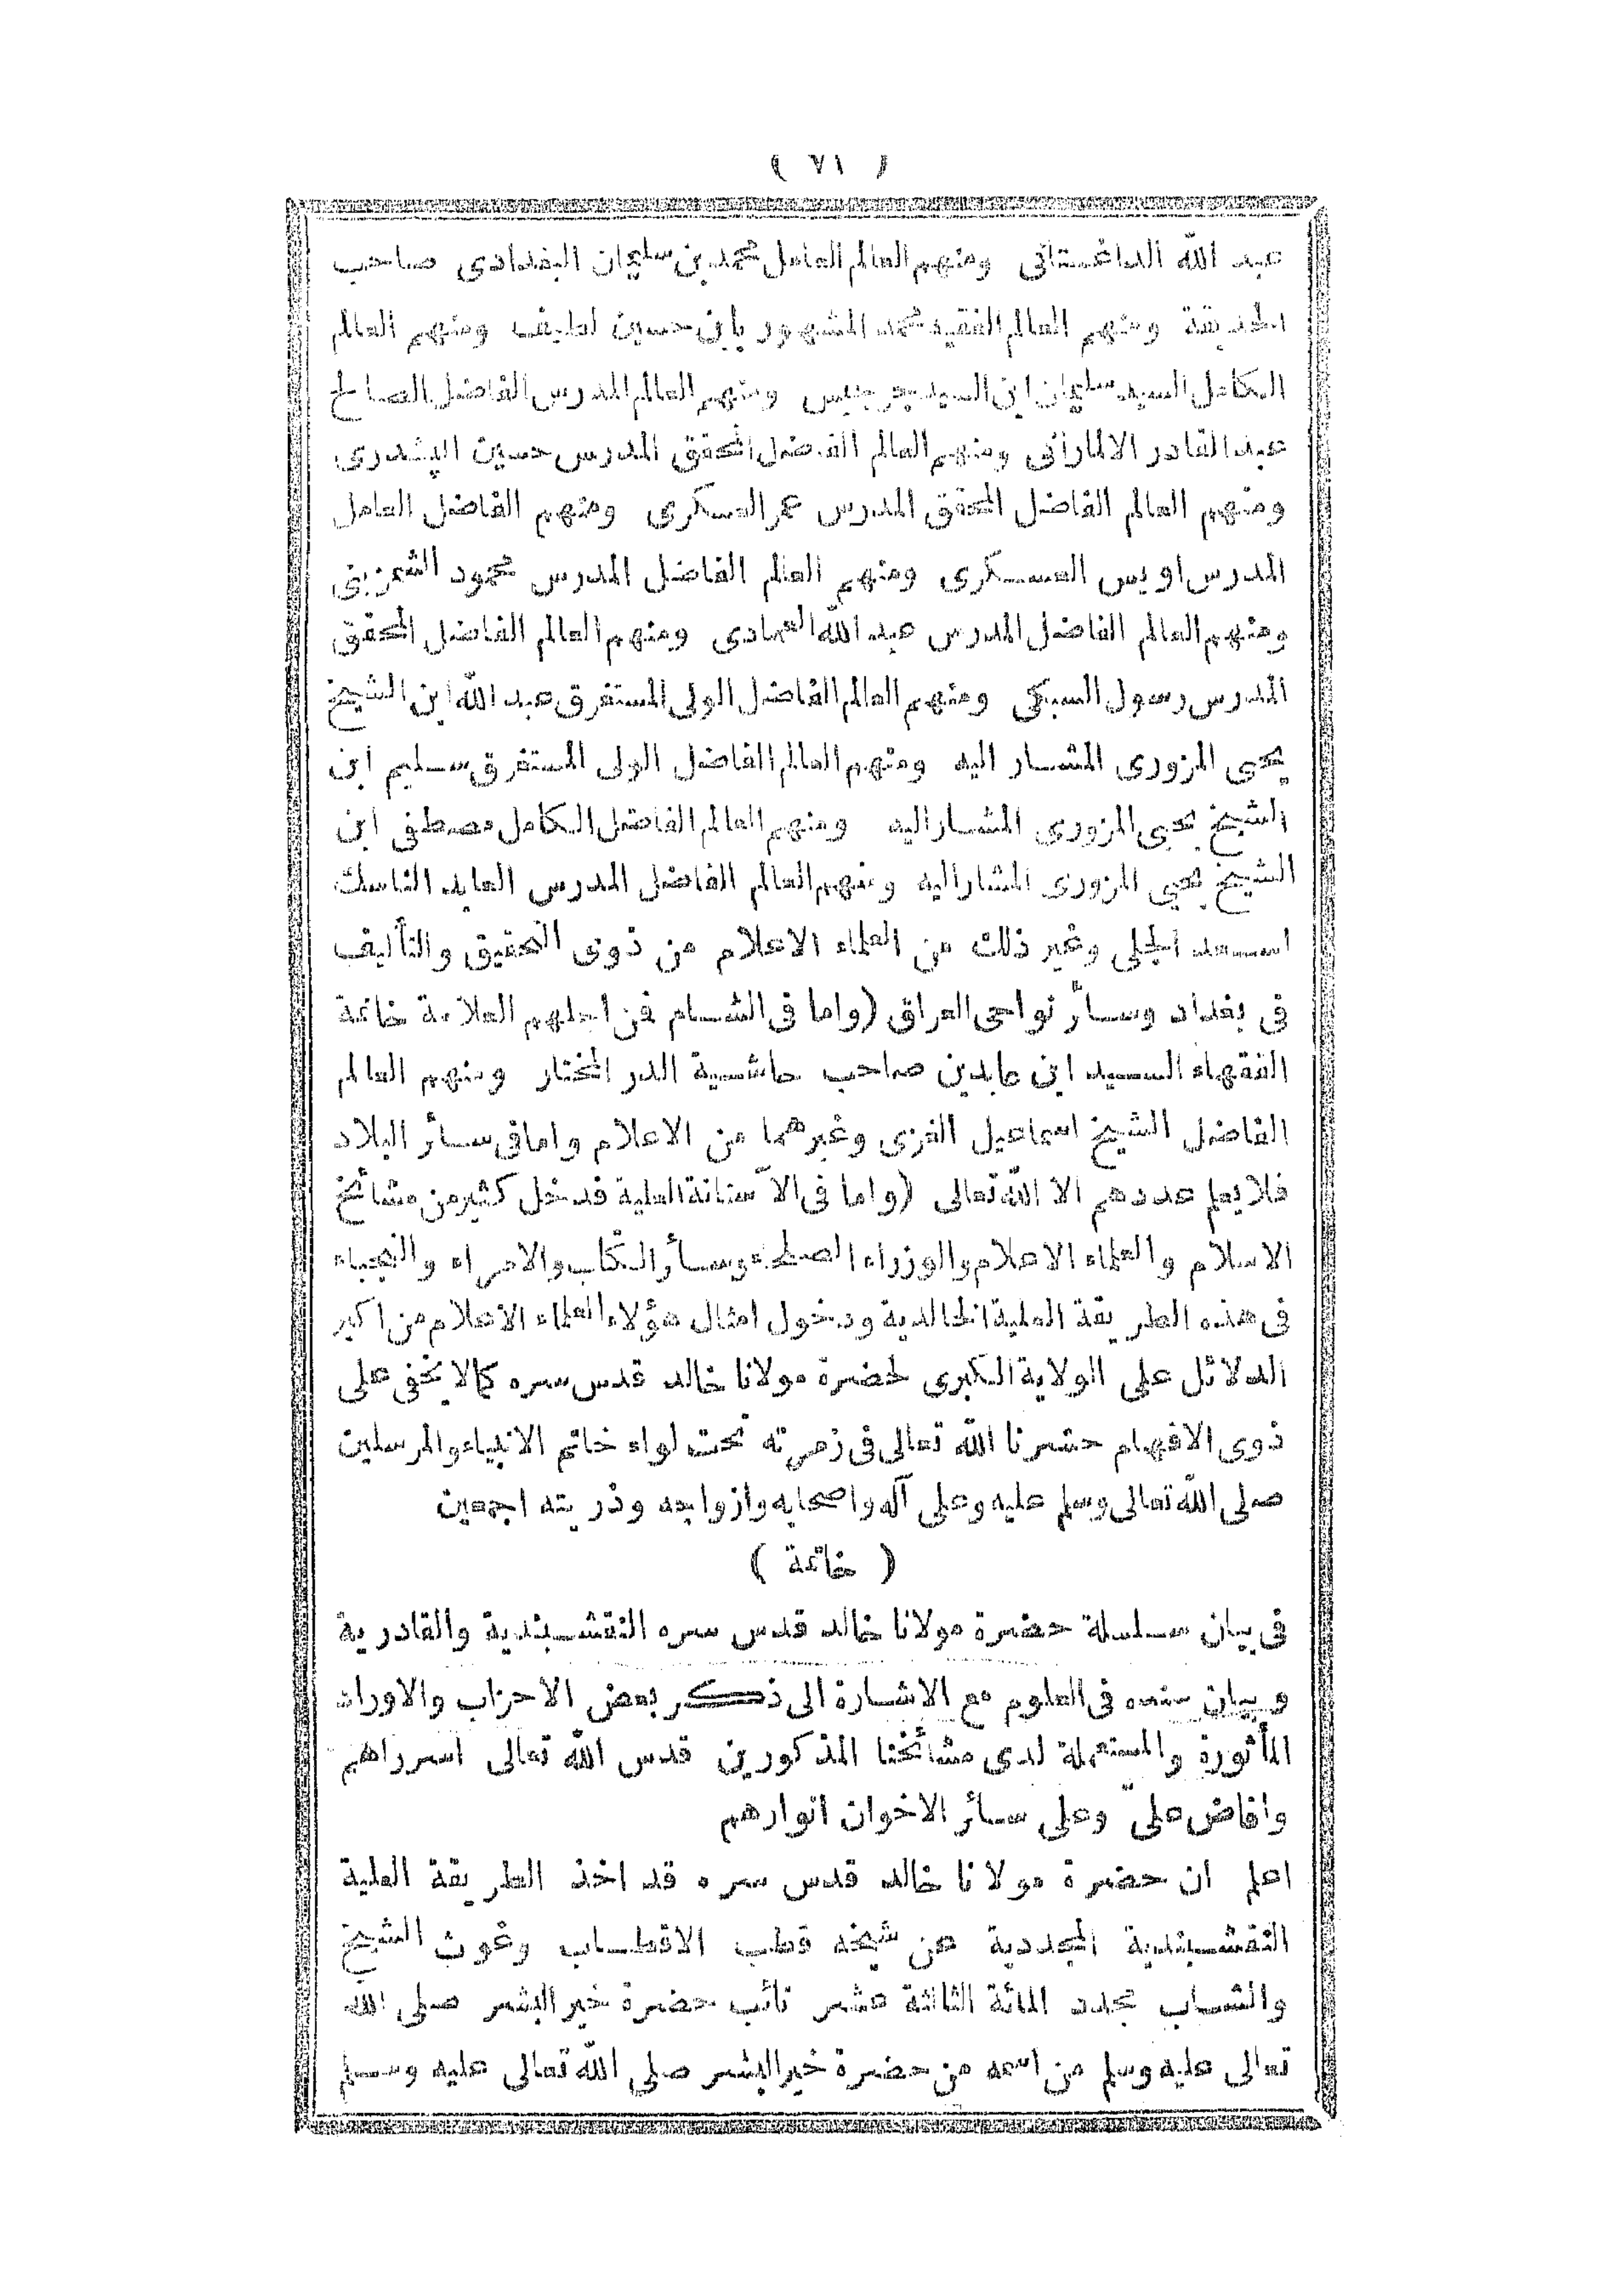 ( ٧١ )
عبد الله الداغستانى ومنهم العالم العامل محمد بن سليمان البغدادى صاحب
الحديقة ومنهم العالم الفقيه محمد المشهور بابن حسين لطيف ومنهم العالم
الكامل السيد سليمان ابن السيد جرجيس ومنهم العالم المدرس الفاضل الصالح
عبد القادر الالمارانى ومنهم العالم الفاضل المحقق المدرس حسين الپشدرى
ومنهم العالم الفاضل المحقق المدرس عمر العسكرى ومنهم الفاضل العامل
المدرس اويس العسكرى ومنهم العالم الفاضل المدرس محمود
ومنهم العالم الفاضل المدرس عبد الله العمادى ومنهم العالم الفاضل المحقق
المدرس رسول السبكى ومنهم العالم الفاضل الولى المستغرق عبد الله ابن الشيخ
يحيى المزورى المشار اليه ومنهم العالم الفاضل الولى المستغرق سليم ابن
الشيخ يحيى المزورى المشار اليه ومنهم العالم الفاضل الكامل مصطفى ابن
الشيخ يحيى المزورى المشار اليه ومنهم العالم الفاضل المدرس العابد الناسك
اسعد الجلى وغير ذلك من العلماء الاعلام من ذوى التحقيق والتأليف
فى بغداد وسائر نواحى العراق (واما فى الشام فمن اجلهم العلامة خاتمة
الفقهاء السيد ابن عابدين صاحب حاشية الدر المختار ومنهم العالم
الفاضل الشيخ اسماعيل الغزى وغيرهما من الاعلام واما فى سائر البلاد
فلا يعلم عددهم الا الله تعالى (واما فى الآستانة العلية فدخل كثير من مشائخ
الاسلام والعلماء الاعلام والوزراء الصلحاء وسائر الكتاب والامراء والنجباء
فى هذه الطريقة العلية الخالدية ودخول امثال هؤلاء العلماء الاعلام من اكبر
الدلائل على الولاية الكبرى لحضرة مولانا خالد قدس سره كما لا يخفى على
ذوى الافهام حشرنا الله تعالى فى زمرته تحت لواء خاتم الانبياء والمرسلين
صلى الله تعالى وسلم عليه وعلى آله واصحابه وازواجه وذريته اجمعين
( خاتمة )
فى بيان سلسلة حضرة مولانا خالد قدس سره النقشبندية والقادرية
وبيان سنده فى العلوم مع الاشارة الى ذكر بعض الاحزاب والاوراد
المأثورة والمستعملة لدى مشائخنا المذكورين قدس الله تعالى اسرراهم
وافاض علىّ وعلى سائر الاخوان انوارهم
اعلم ان حضرة مولانا خالد قدس سره قد اخذ الطريقة العلية
النقشبندية المجددية عن شيخه قطب الاقطاب وغوث الشيخ
والشاب مجدد المائة الثالثة عشر نائب حضرة خير البشر صلى الله
تعالى عليه وسلم من اسمه من حضرة خير البشر صلى الله تعالى عليه وسلم